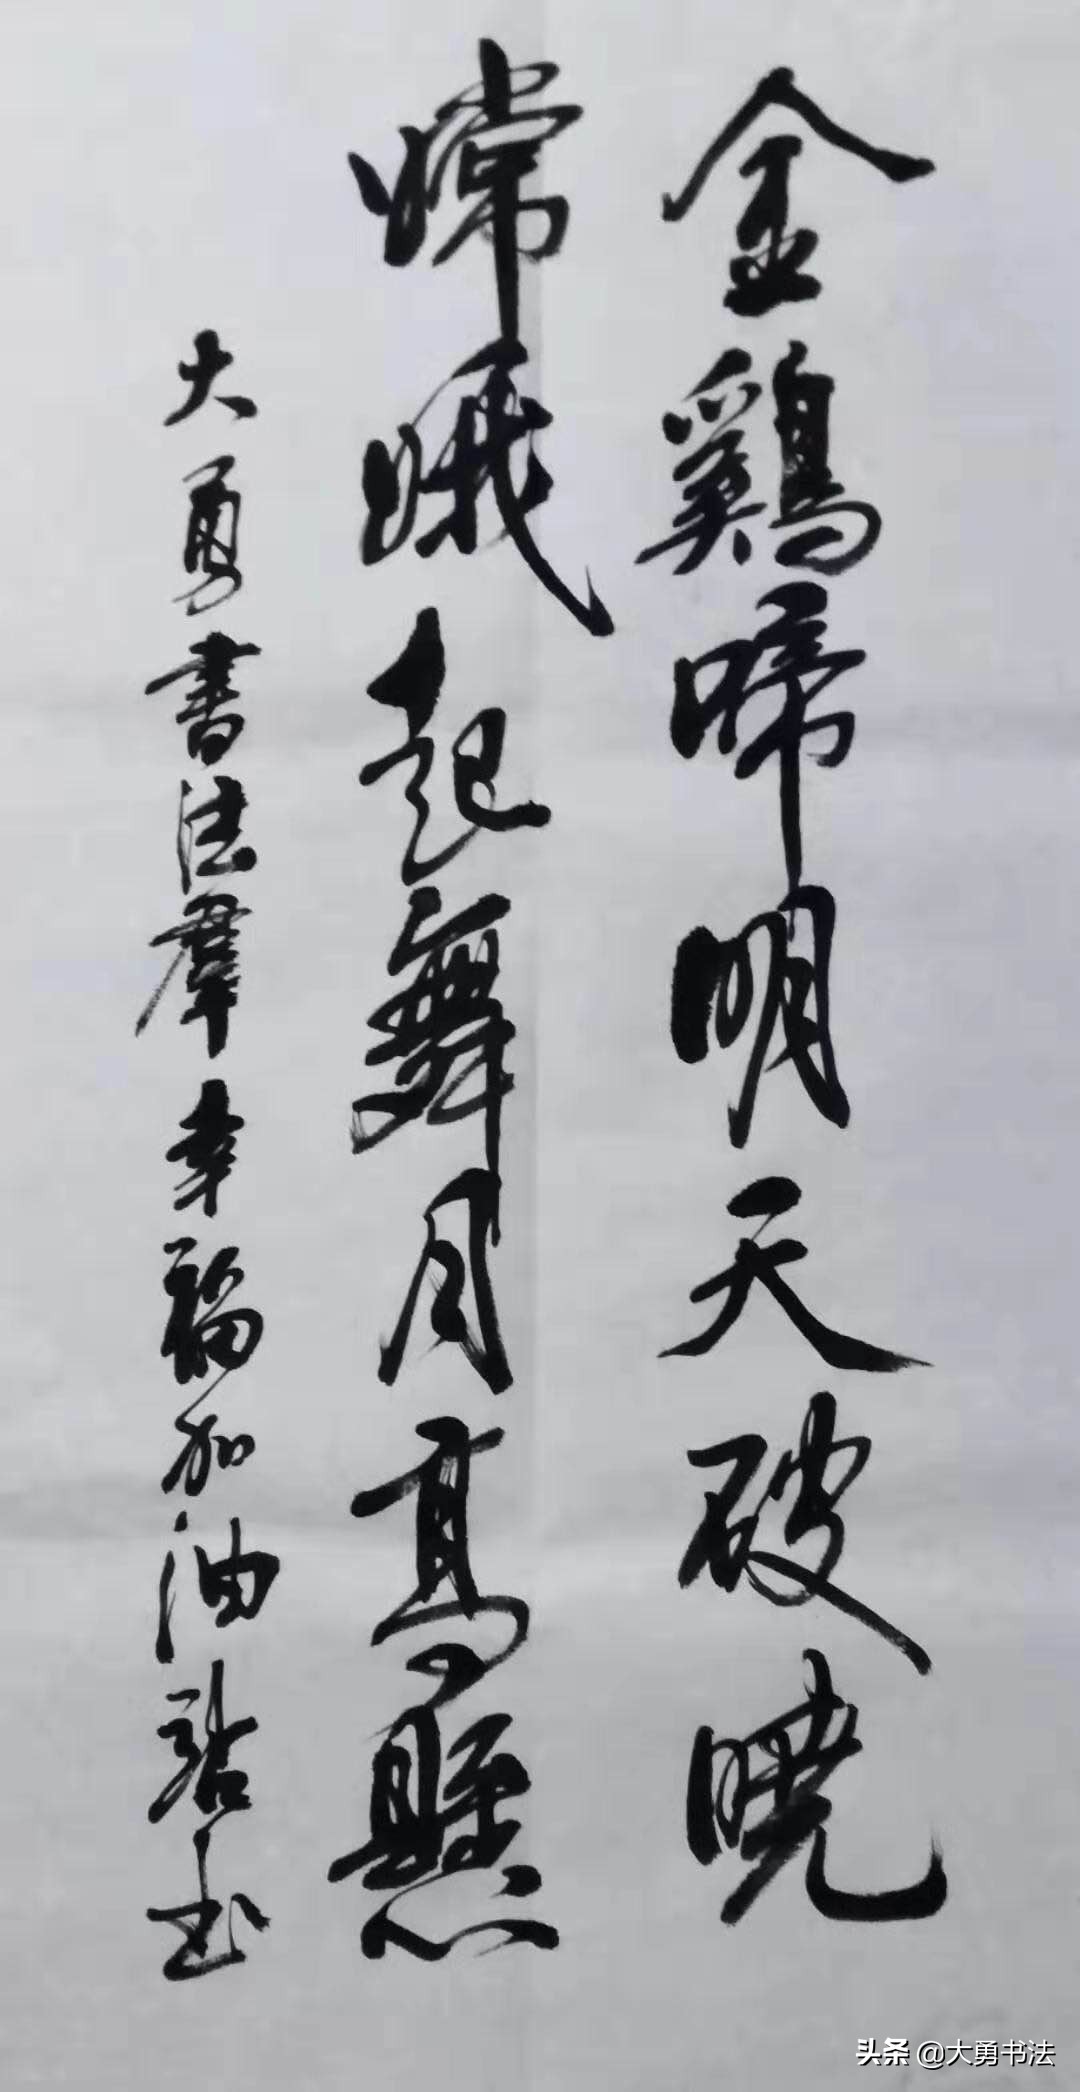 金鷄啼明天破曉
嫦娥起舞月高懸
大勇書法羣幸福加油站书
头条 @大勇书法